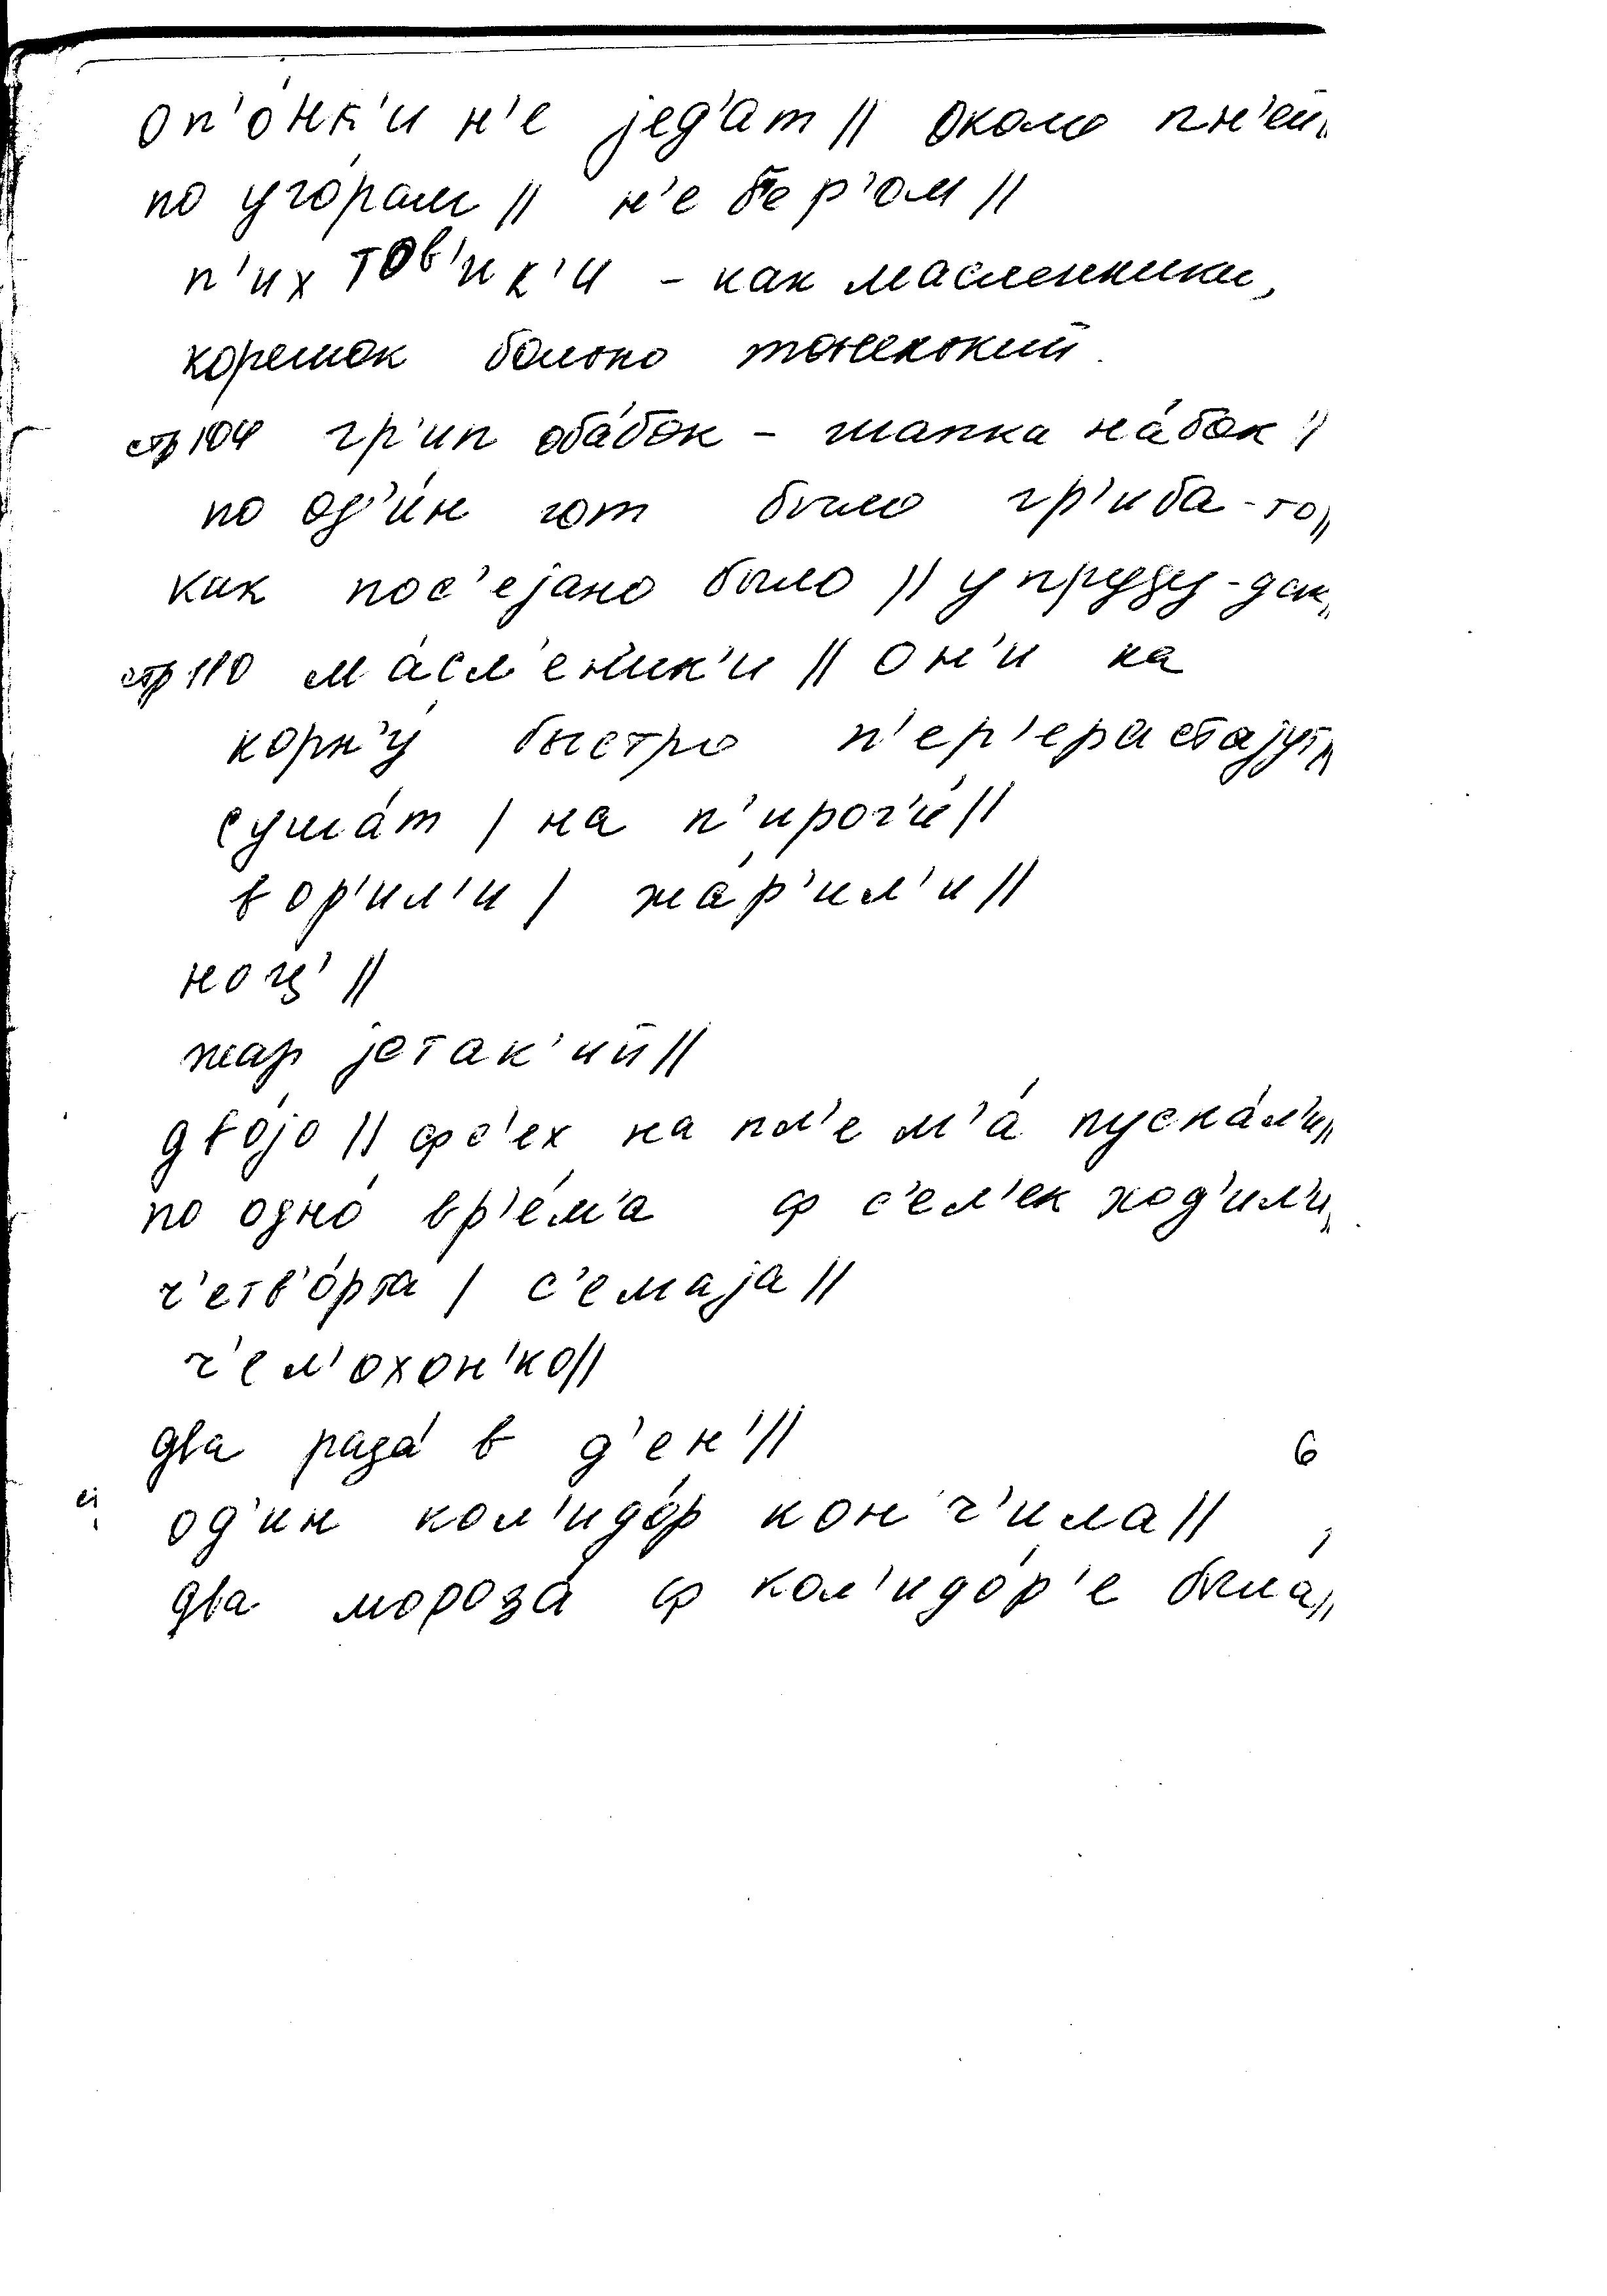 оп'о́нк'и н'е јед'ат || около пн'ей ||
по уго́рам || н'е бер'ом ||
п'ихтов'ик'и - как масленники,
корешок больно тоненький.
стр 104 гр'ип оба́бок - шапка на́бок ||
по од'и́н гот было гр'иба-то ||
как пос'ејано было || у пруду-дак ||
стр 110 ма́сл'еник'и || он'и на
корн'у́ быстро п'ер'ерастајут ||
суша́т | на п'ирог'и́ ||
вор'ил'и | жа́р'ил'и ||
ноц' ||
жар јетак'ий ||
дво́јо || фс'ех на пл'ем'а́ пуска́л'и ||
по одно́ вр'е́м'а ф с'ел'ек ход'ил'и ||
ч'етв'о́рта | с'емаја ||
ч'ел'охон'ко ||
два раза́ в д'ен' ||
6
од'ин кол'идо́р кон'ч'ила ||
два мороза́ ф кол'идо́р'е была́ ||